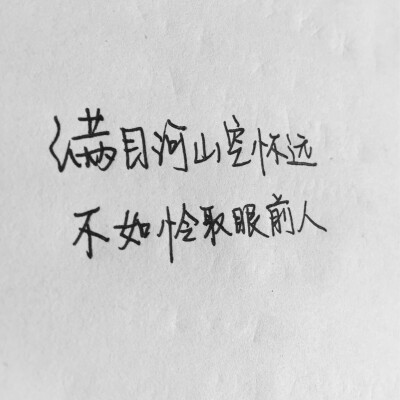 满目河山空怀远
不如怜取眼前人